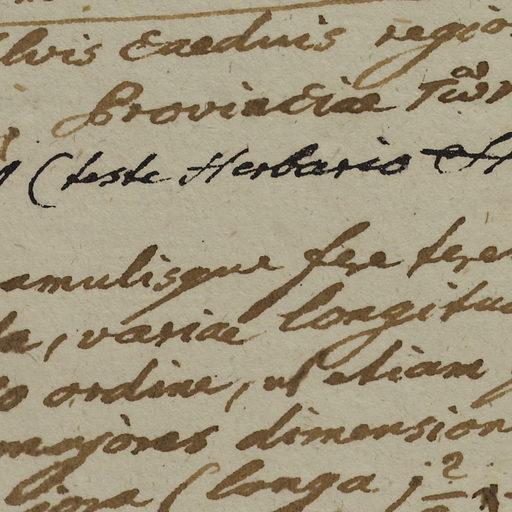 lvis Caeduis regio
Provinciae
(teste Herbario
amulisque fere tere
la, variae longitu
o ordine, ut etiam
majores dimension
(longa j